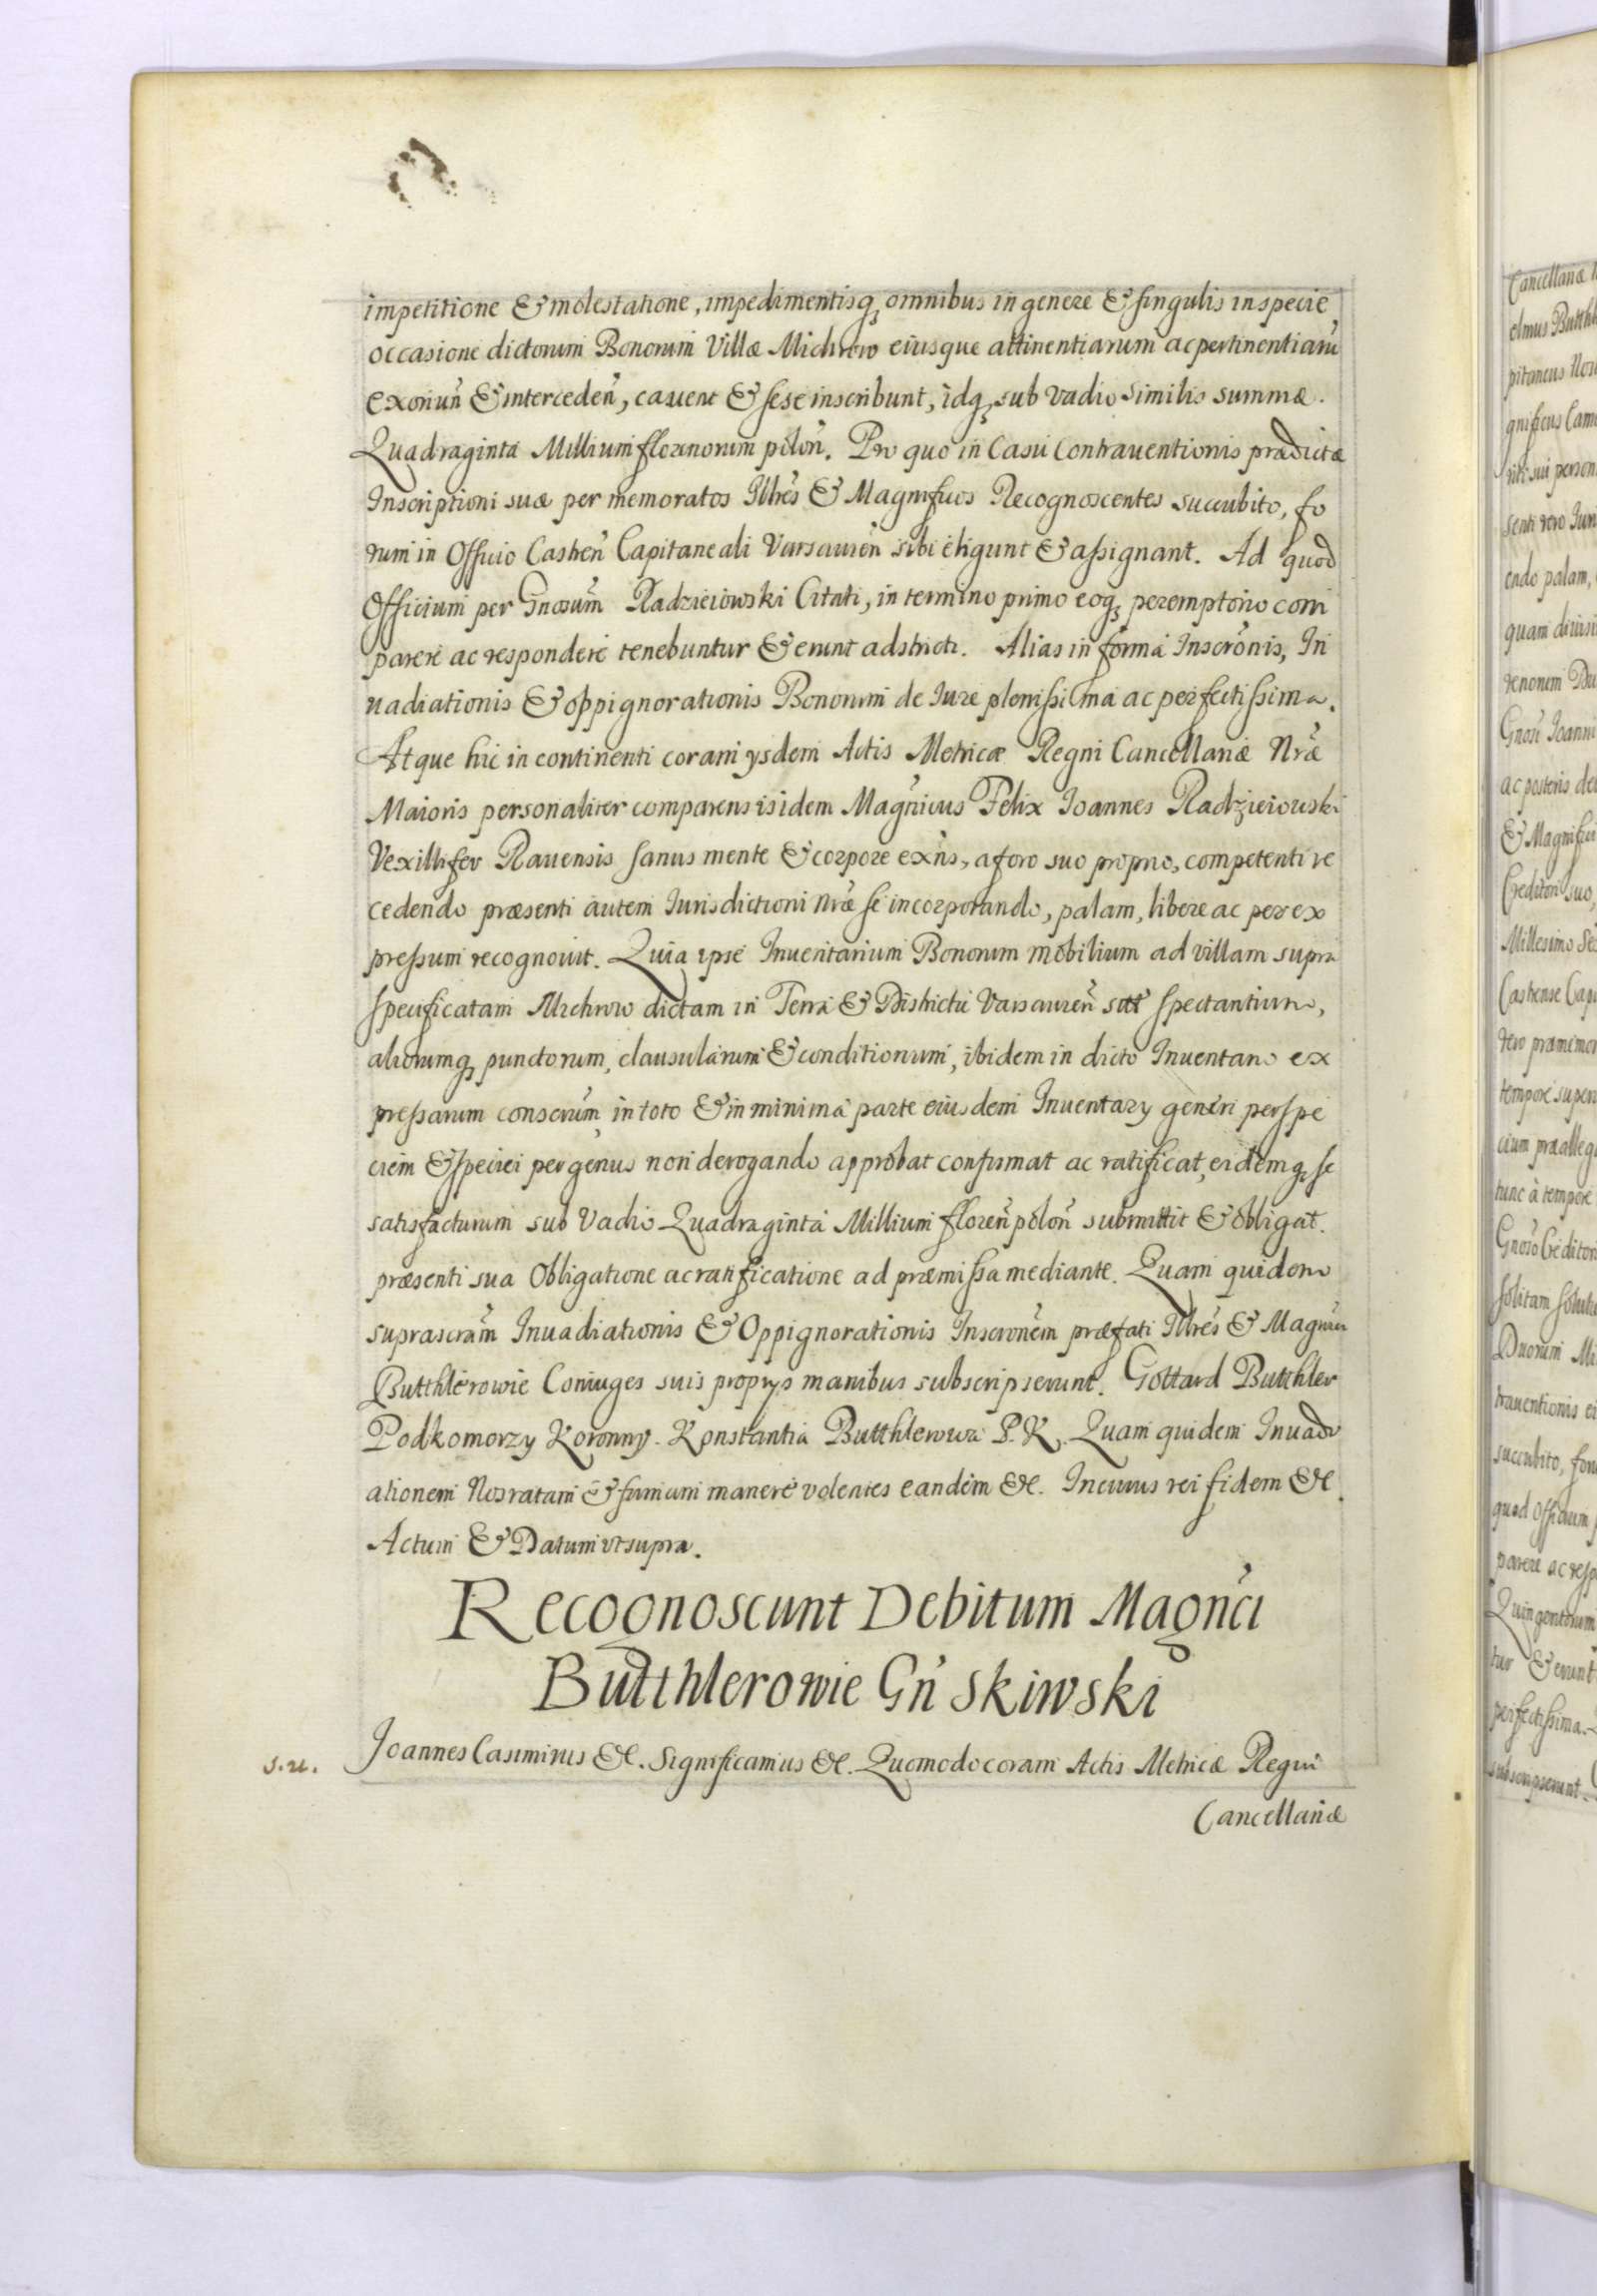 impetitione & molestatione, impedimentisq; omnibus in genere & singulis in specie
occasione dictorum Bonorum Villæ Michrow eiusque attinentiarum ac pertinentiarũ
exoriuñ & intercedeñ, cauent & sese inscribunt, idq; sub vadio similis summæ.
Quadraginta Millium florenorum poloñ. Pro quo in Casu Contrauentionis prædictæ
Inscriptioni suæ per memoratos Illres & Magnificos Recognoscentes succubito, fo
rum in Officio Castreñ Capitaneali Varsauień sibi eligunt & assignant. Ad quod
Officium per Gnosum Radzieiowski Citati, in termino primo eoq; peremptorio com
parere ac respondere tenebuntur & erunt adstricti. Alias in forma Inscrõnis, In
uadiationis & oppignorationis Bonorum de Iure plenissima ac perfectissima.
Atque hic in continenti coram ysdem Actis Metricæ Regni Cancellariæ Nræ
Maioris personaliter comparens isidem Magnicus Felix Joannes Radzieiouski
Vexillifer Rauensis sanus mente & corpore exñs, a foro suo proprio, competenti re
cedendo præsenti autem Iurisdictioni nræ se incorporando, palam, libere ac per ex
pressum recognouit. Quia ipse Inuentarium Bonorum mobilium ad villam supra
specificatam Michrow dictam in Terra & Districtu Varsauień spectantium,
aliorumq; punctorum, clausularum & conditionum, ibidem in dicto Inuentario ex
pressarum conscrum, in toto & in minima parte eiusdem Inuentary generi per spe
ciem & speciei per genus non derogando approbat confirmat ac ratificat, eidemq; se
satisfacturum sub Vadio Quadraginta Millium floreñ poloñ submittit & obligat.
præsenti sua Obligatione ac ratificatione ad præmissa mediante. Quam quidem
suprascram Inuadiationis & Oppignorationis Inscronem præfati Illres & Magnici
Butthlerowie Coniuges suis proprys manibus subscripserunt. Gottard Butthler
Podkomorzy Koronny. Konstantia Butthlerowa P. K. Quam quidem Inuadi
ationem Nos ratam & firmam manere volentes eandem &c. In cuius rei fidem &c.
Actum & Datum vt supra.
Recognoscunt Debitum Magnci
Butthlerowie Gñ Skiwski
S. R. Joannes Casimirus &c. Significamus &c. Quomodo coram Actis Metricæ Regni
Cancellariæ